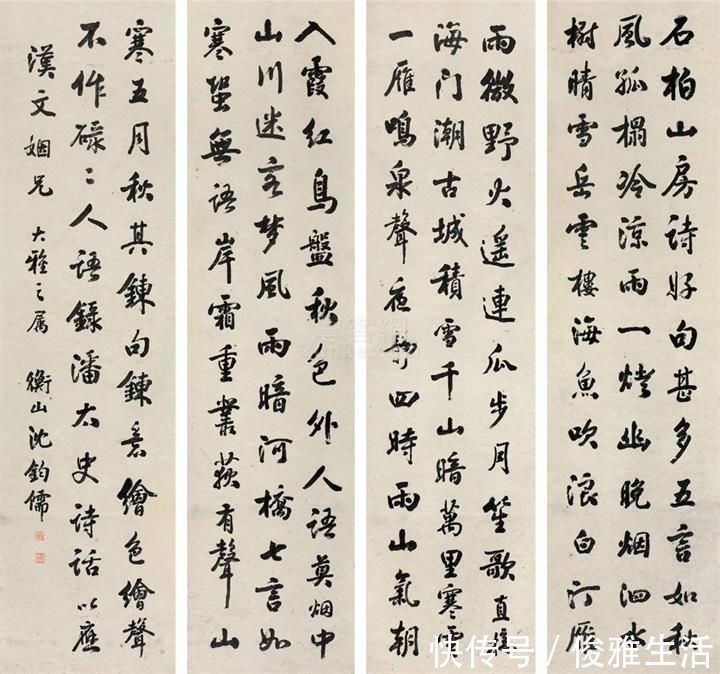 石柏山房詩好句甚多五言如秋
風孤榻冷涼雨一燈幽晚烟泗水
樹晴雪岳雲樓海魚吹浪白汀雁
雨微野火遥連瓜步月笙歌直
海门潮古城積雪千山暗萬里寒雲
一雁鳴泉聲夜四時雨山氣朝
入霞紅鳥盤秋色外人語莫烟中
山川迷客夢風雨暗河橋七言如
寒蛩無語岸霜重叢荻有聲山
寒五月秋其鍊句鍊意繪色繪聲
不作碌々人語錄潘太史詩話以應
漢文姻兄 大雅之属 衡山沈鈞儒
快传号 / 俊雅生活